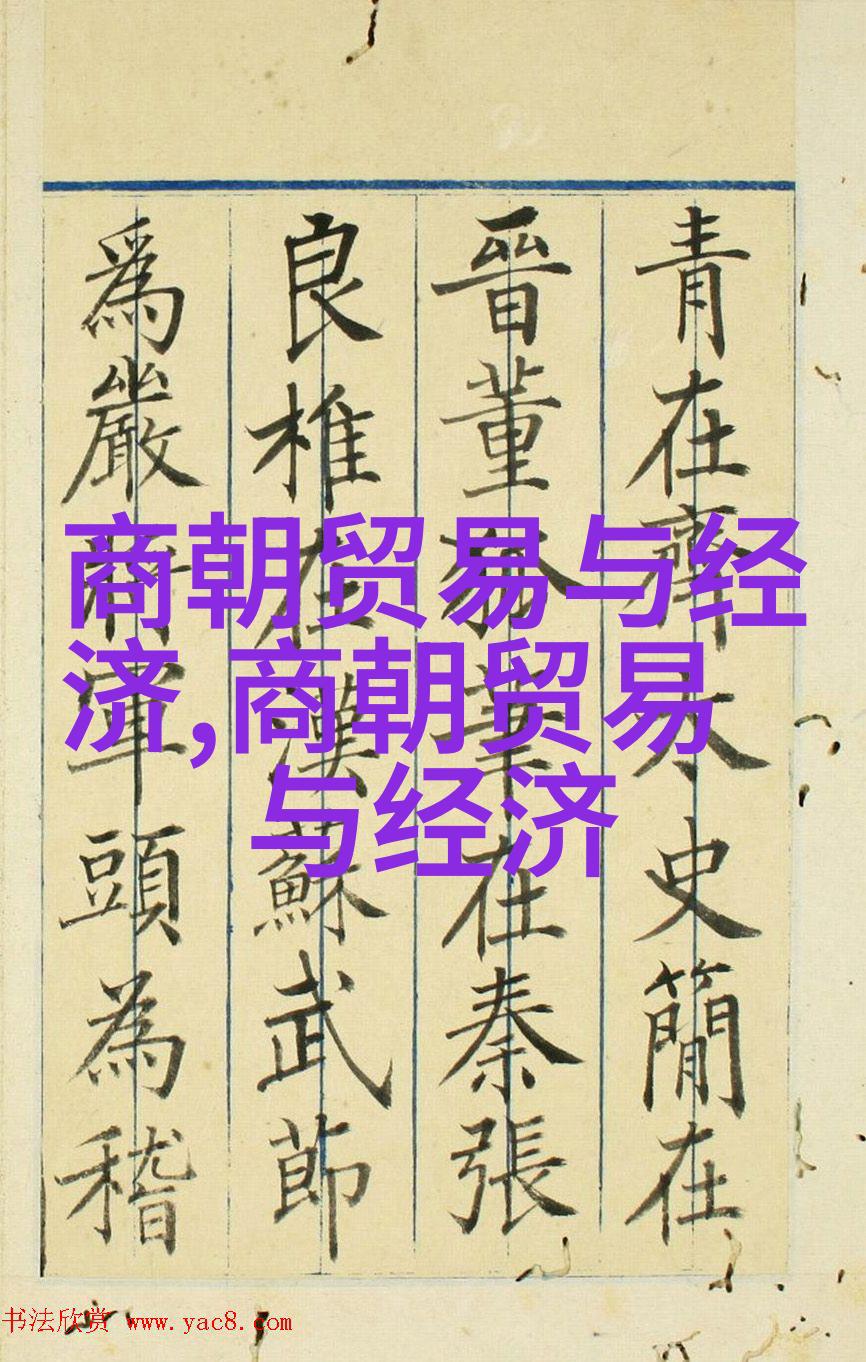 青在齊太史簡在
晉董狐筆在秦張
良椎在漢蘇武節
爲嚴將軍頭為稽
商朝贸易与经
济,商朝贸易
与经济
书法欣赏 www.yac8.com